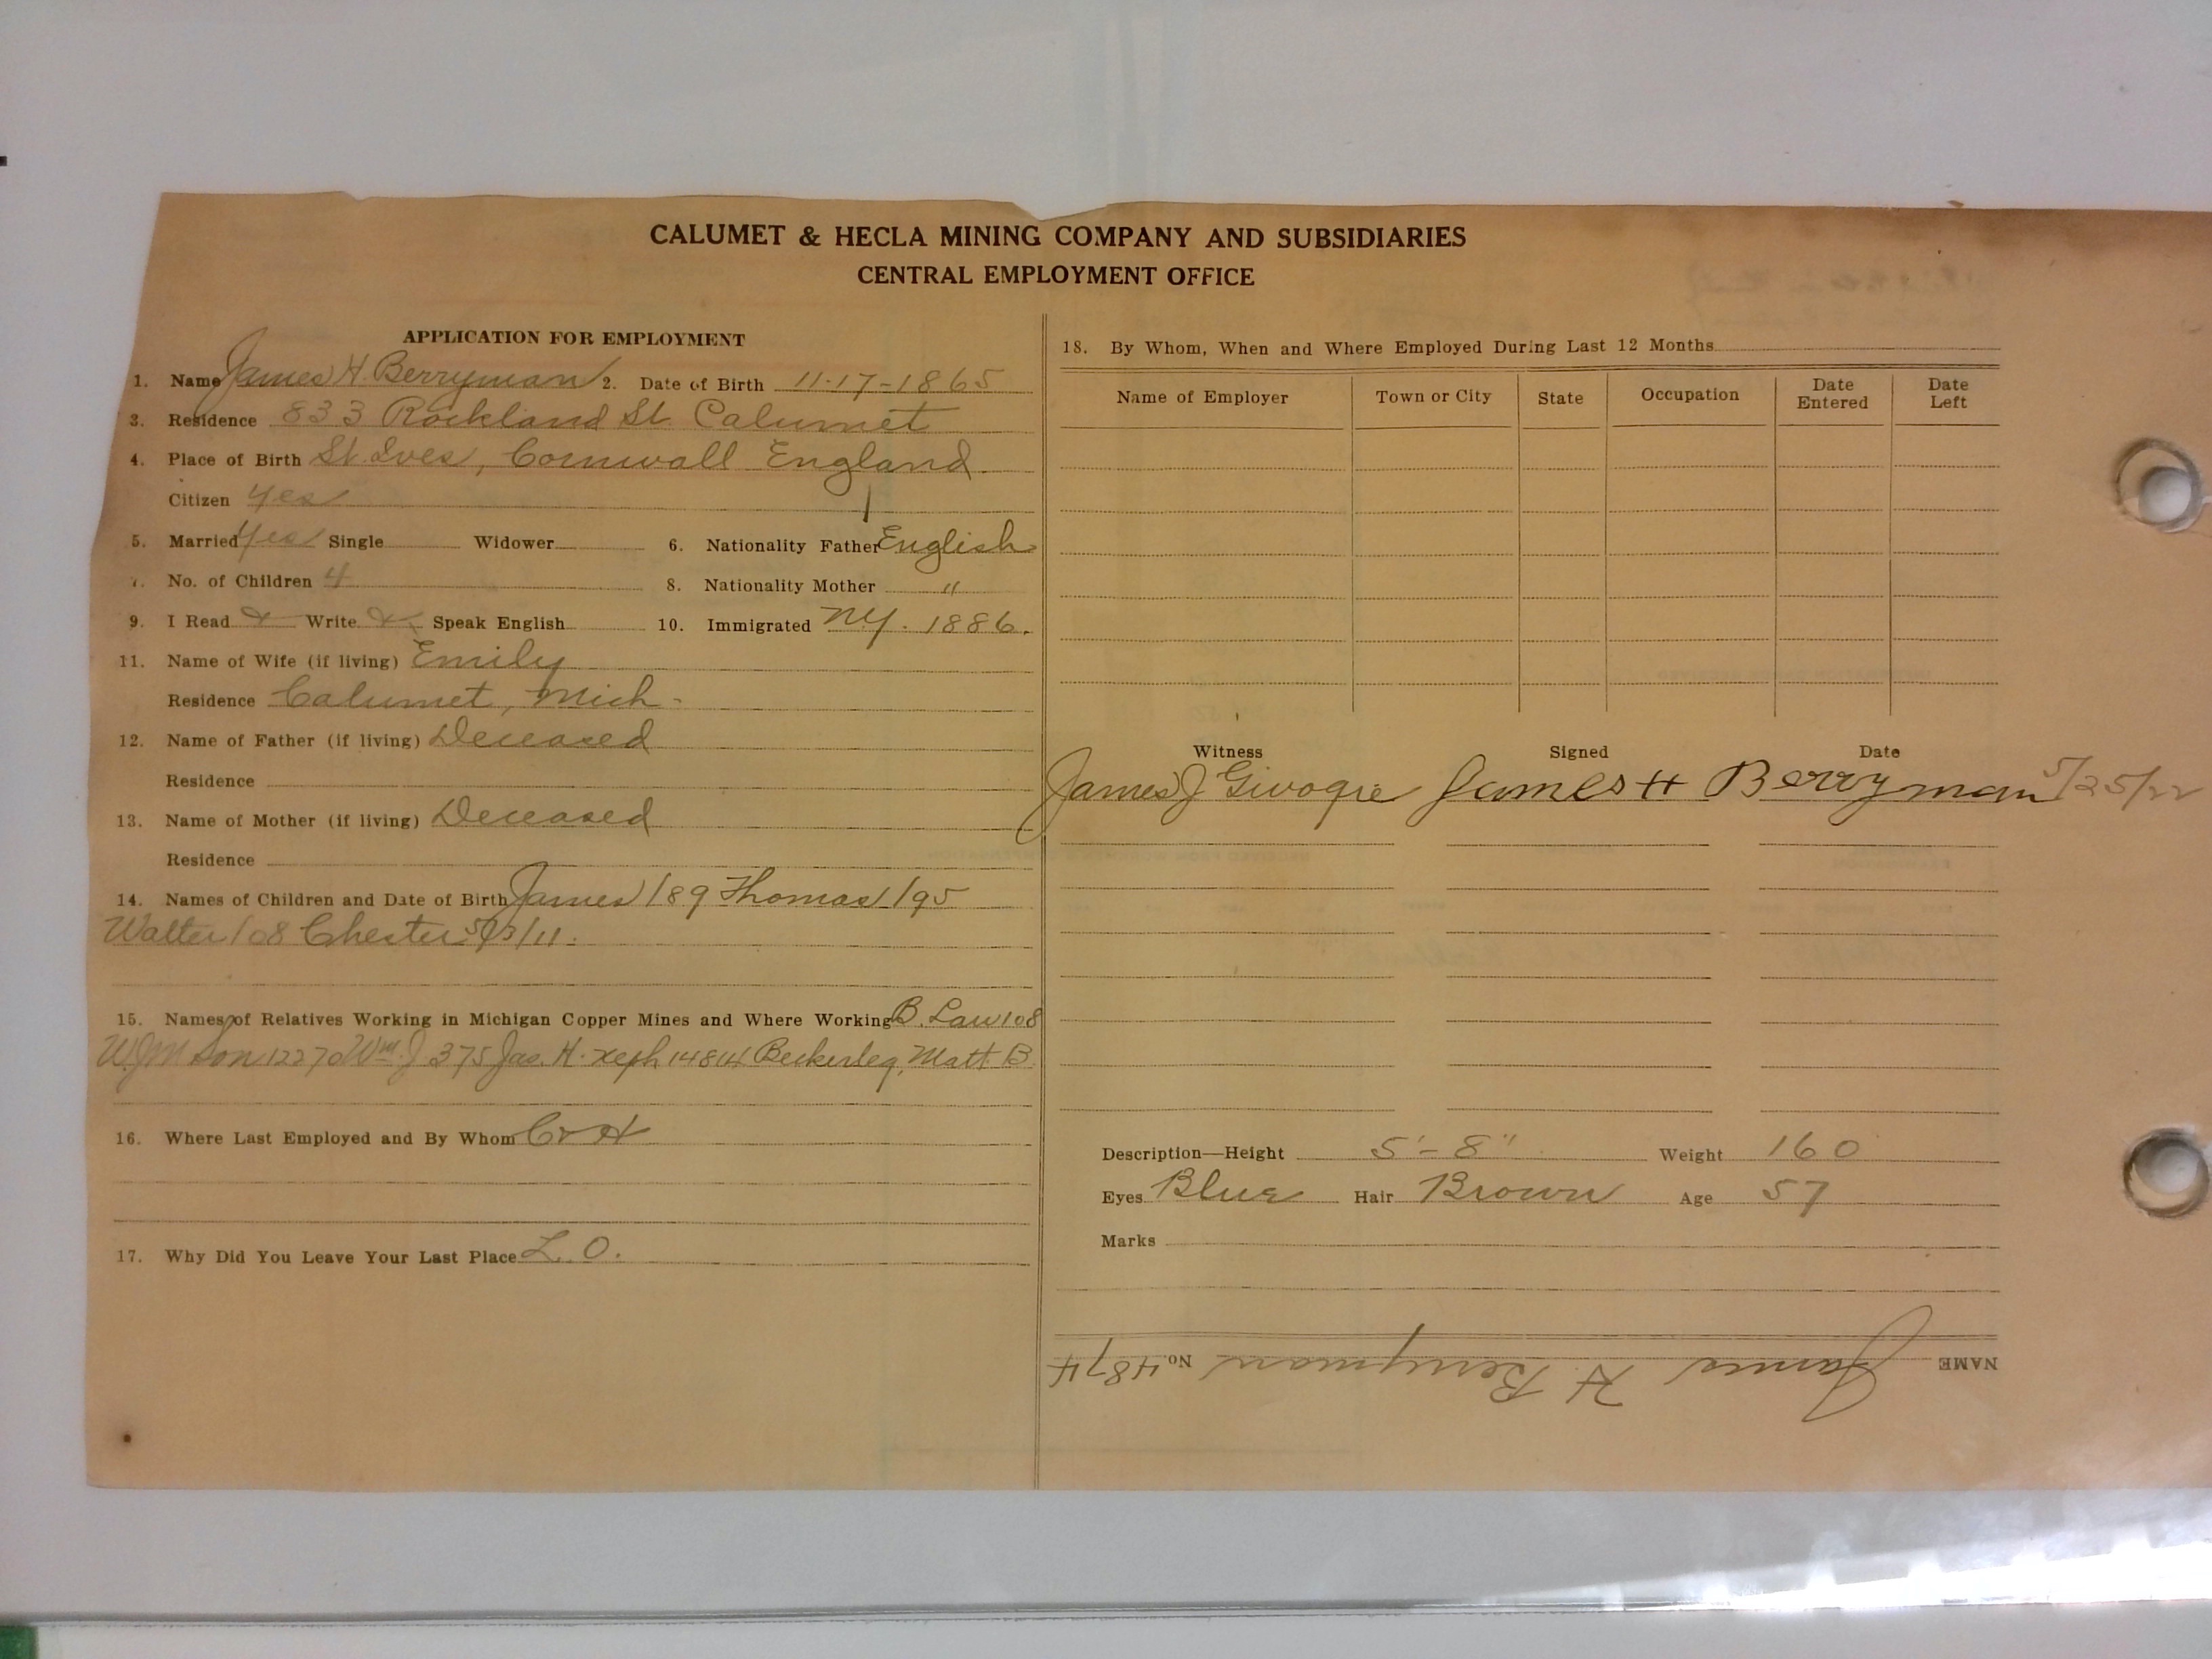 CALUMET & HECLA MINING COMPANY AND SUBSIDIARIES
CENTRAL EMPLOYMENT OFFICE
APPLICATION FOR EMPLOYMENT
1. Name James H. Berryman 2. Date of Birth 11-17-1865
3. Residence 833 Rockland St. Calumet
4. Place of Birth St. Ives, Cornwall England.
Citizen Yes
5. Married Yes Single Widower 6. Nationality Father English
7. No. of Children 4 8. Nationality Mother "
9. I Read Write Speak English 10. Immigrated N.Y. 1886.
11. Name of Wife (if living) Emily
Residence Calumet, Mich.
12. Name of Father (if living) Deceased
Residence
13. Name of Mother (if living) Deceased
Residence
14. Names of Children and Date of Birth James /89 Thomas /95
Walter /08 Chester /11.
15. Names of Relatives Working in Michigan Copper Mines and Where Working B. Law 108
Son 12270 Wm. J 375 Jas. H. 14814 Matt B.
16. Where Last Employed and By Whom C & H
17. Why Did You Leave Your Last Place L. O.
18. By Whom, When and Where Employed During Last 12 Months
Name of Employer Town or City State Occupation Date Entered Date Left
Witness Signed Date
James J James H Berryman 5/25/22
Description—Height 5'-8" Weight 160
Eyes Blue Hair Brown Age 57
Marks
NAME James H. Berryman No. 4874